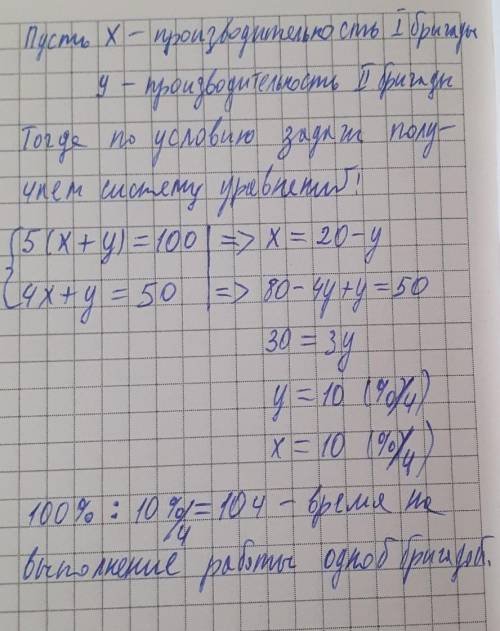 Пусть x - производительность I бригады
y - производительность II бригады
Тогда по условию задачи полу-
чаем систему уравнений:
{5(x+y)=100 | => x = 20-y
{4x+y=50 | => 80-4y+y=50
30=3y
y=10 (%/ч)
x=10 (%/ч)
100% : 10%/ч = 10ч - время на
выполнение работы одной бригадой.